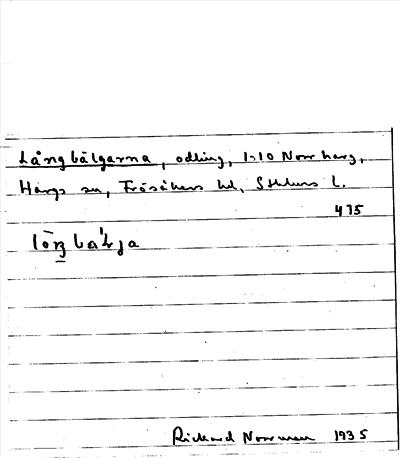 Långbälgarna, odling, 1-10 Norrharg,
Hargs sn, Frösåkers hd, Sthlms l.
475
Rickard Norrman 1935